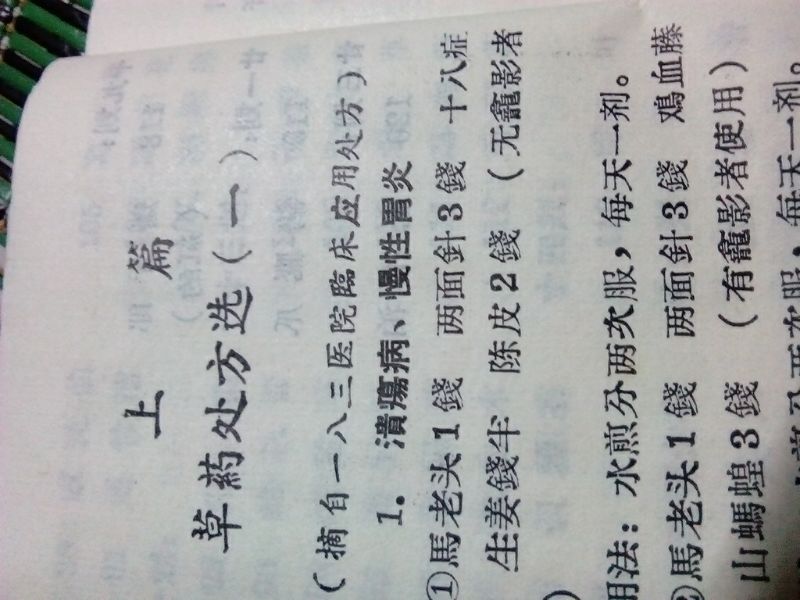 上 篇
草葯处方选(一)
(摘自一八三医院臨床应用处方)
1. 潰瘍病、慢性胃炎
①馬老头1錢 两面針3錢 十八症
生姜錢半 陈皮2錢 (无龕影者
用法:水煎分两次服,每天一剂。
②馬老头1錢 两面針3錢 鸡血藤
山螞蝗3錢 (有龕影者使用)
水煎分两次服,每天一剂。